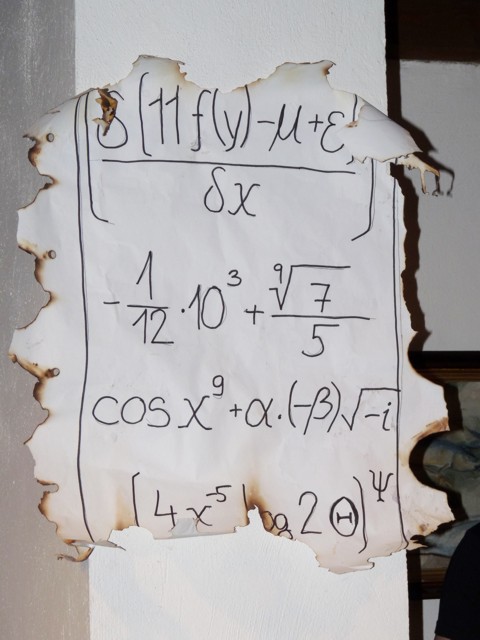 (δ(11 f(y)-μ+ε)/δx)
-1/12·10³+⁹√7/5
cos x⁹+α·(-β)√-i
(4x⁻⁵ log 2Θ)^Ψ